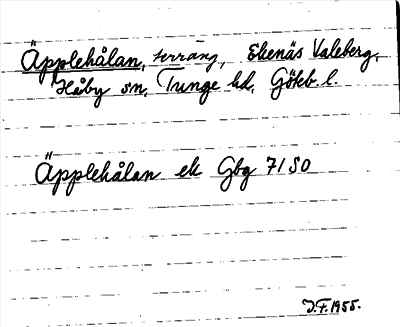 Äpplehålan, terräng, Ekenäs Valeberg,
Håby sn, Tunge hd, Göteb. l.
Äpplehålan ek Gbg 7/SO
J.F. 1955.